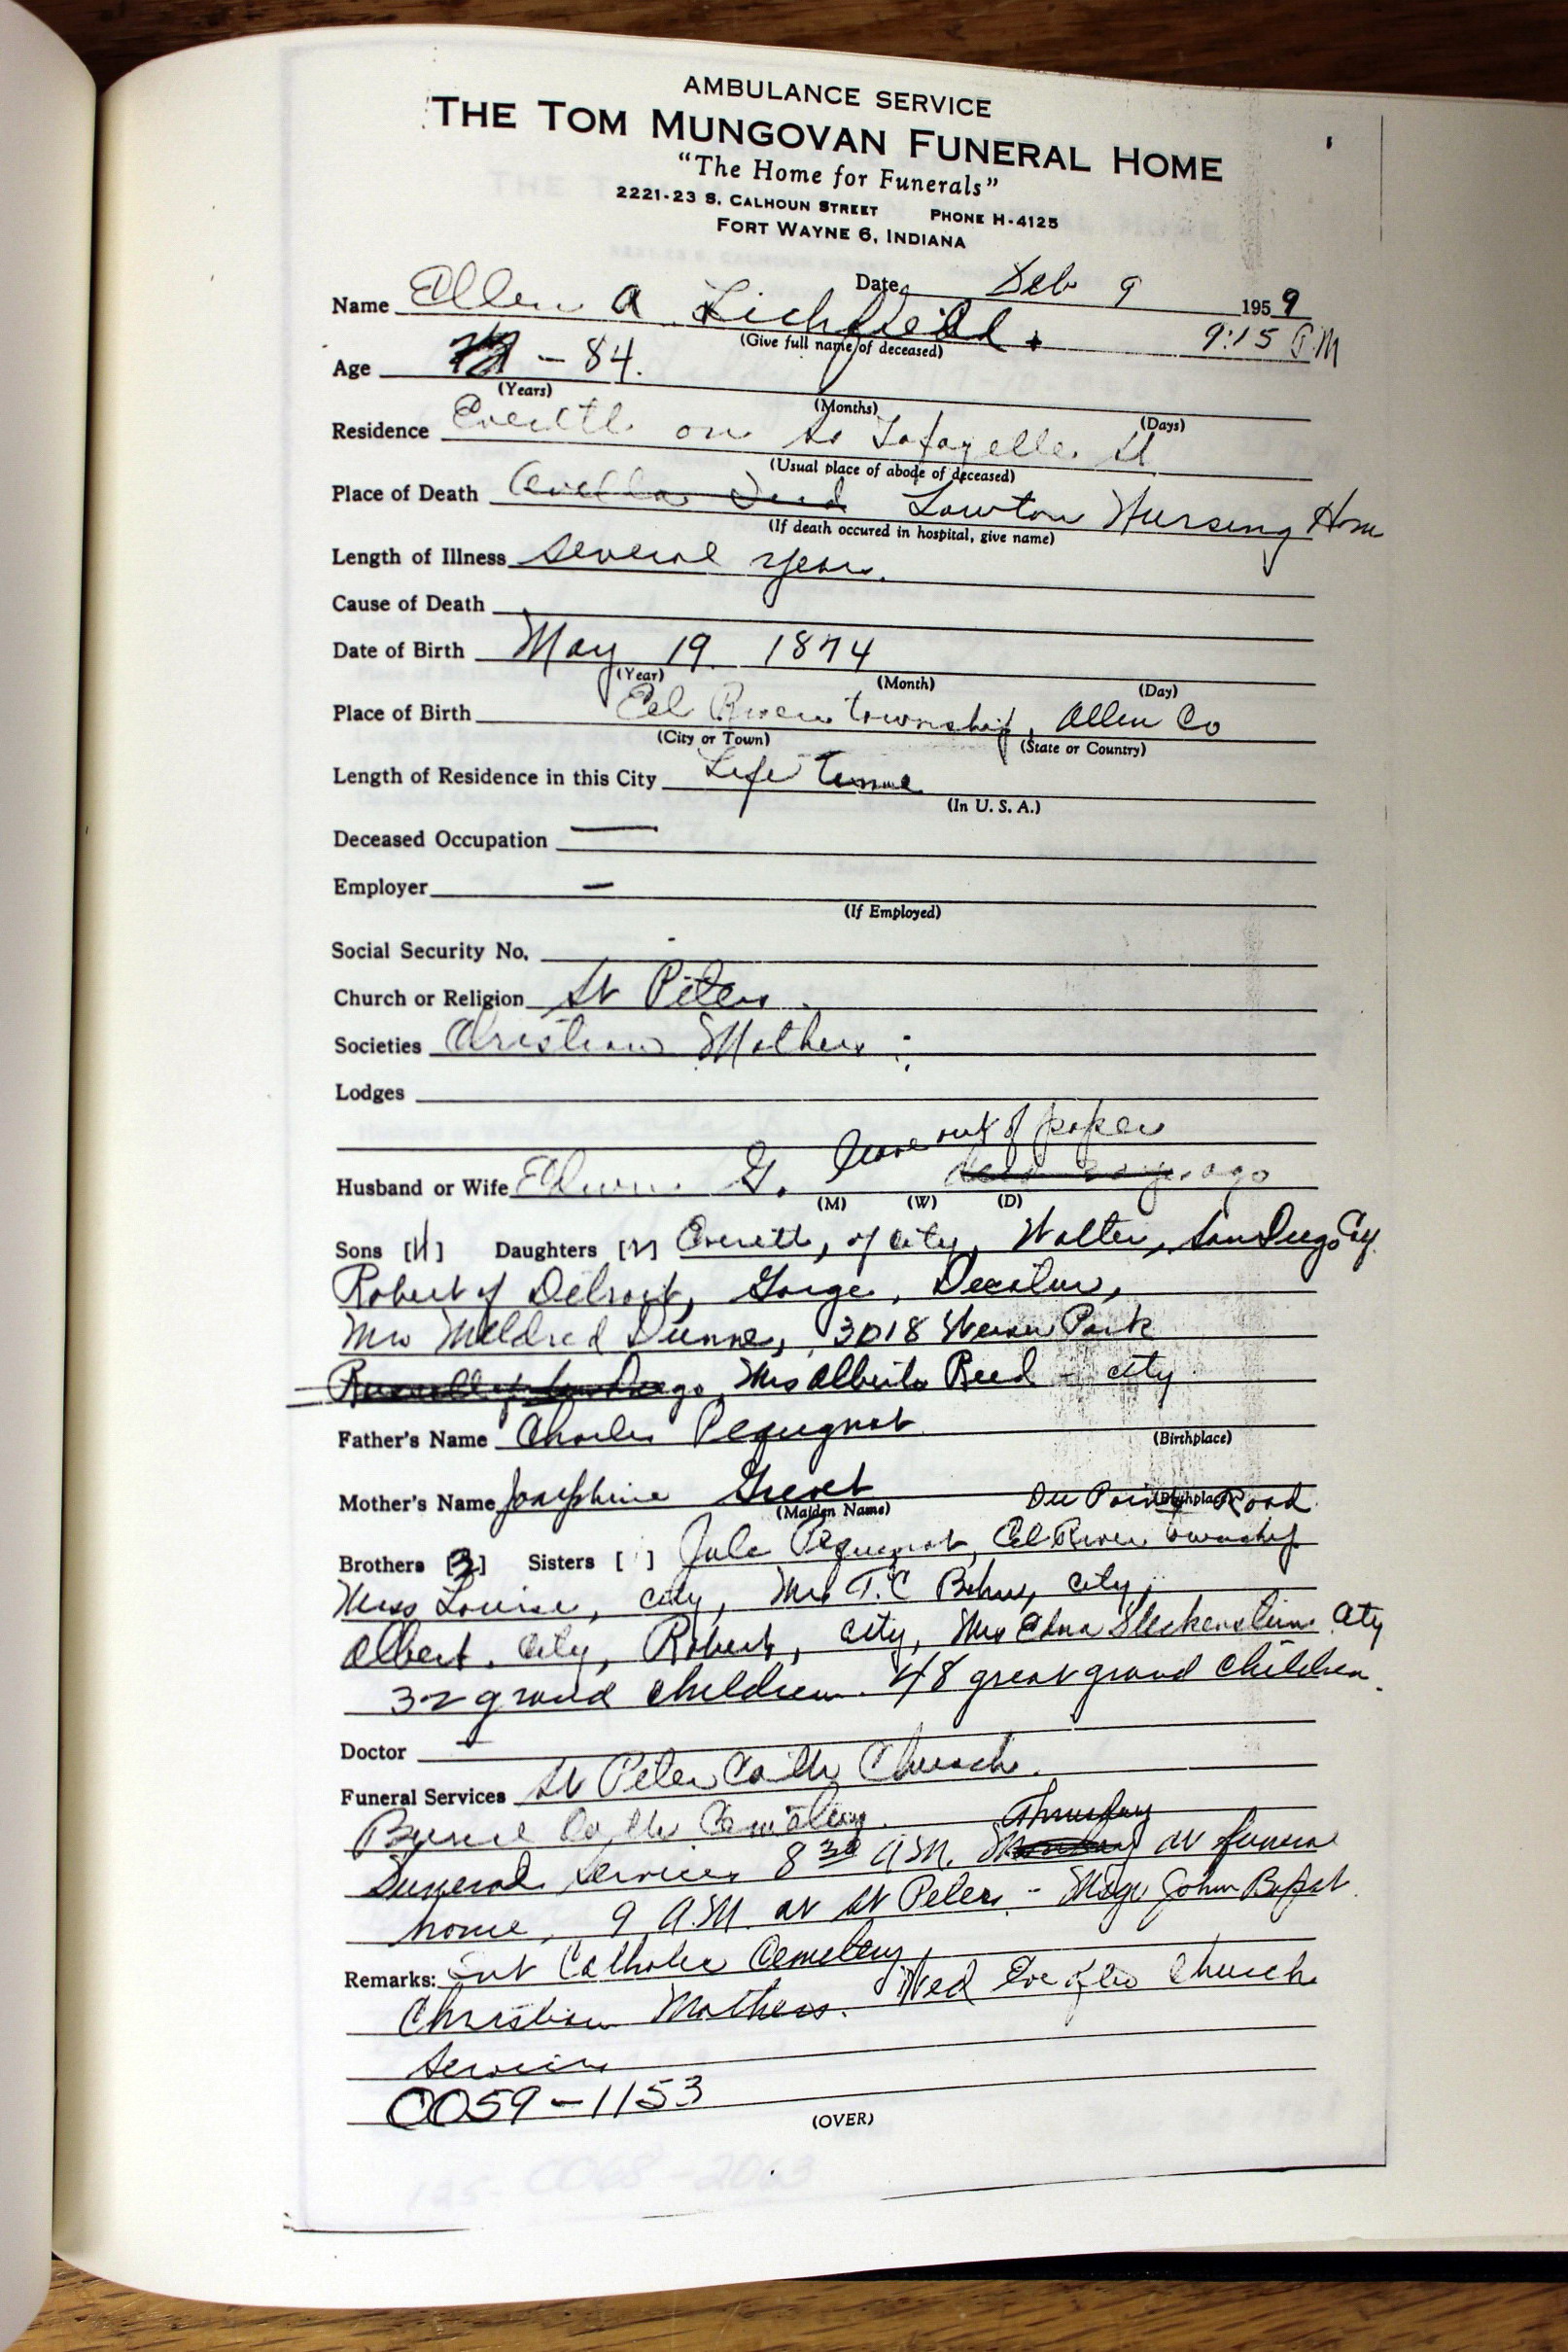 AMBULANCE SERVICE
THE TOM MUNGOVAN FUNERAL HOME
"The Home for Funerals"
2221-23 S. CALHOUN STREET PHONE H-4125
FORT WAYNE 6, INDIANA
Date Feb 9 1959
Name Ellen A Lichfield 9:15 P.M
(Give full name of deceased)
Age - 84.
(Years) (Months) (Days)
Residence Everett on So Lafayette St
(Usual place of abode of deceased)
Place of Death Lawton Nursing Hom
(If death occured in hospital, give name)
Length of Illness several years.
Cause of Death
Date of Birth May 19 1874
(Year) (Month) (Day)
Place of Birth Eel River township, Allen Co
(City or Town) (State or Country)
Length of Residence in this City Life time
(In U. S. A.)
Deceased Occupation —
Employer —
(If Employed)
Social Security No.
Church or Religion St Peters.
Societies Christian Mothers
Lodges
leave out of paper
Husband or Wife Edwin G. ago
(M) (W) (D)
Sons [4] Daughters [2] Everett, of city, Walter, San Diego
Robert of Detroit, George, Decatur,
Mrs Mildred Dunne, 3018 Weisser Park
Mrs Alberta Reed - city
Father's Name Charles Pequignot
(Birthplace)
Mother's Name Josephine
(Maiden Name) (Birthplace) Road
Brothers [3] Sisters [ ] Jule Pequignot, Eel River township
Miss Louise, city, Mrs T.C city,
Albert, city, Robert, city, Mrs Edna City
32 grand children. 48 great grand children.
Doctor
Funeral Services St Peter Cath Church.
Burial Cath Cemetery. Thursday
Funeral services 8 30 A.M. at funeral
home, 9 A.M. at St Peters - Msgr John
Remarks: Catholic Cemetery,
Christian Mothers. Wed Church
Services
0059-1153
(OVER)